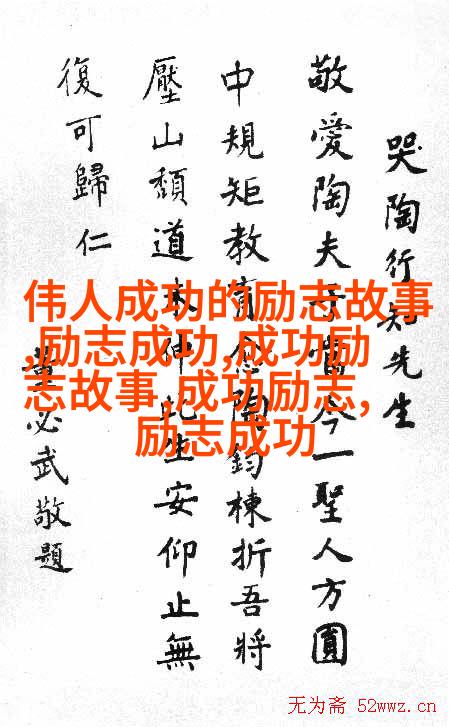 哭陶行知先生
敬愛陶夫子當今一聖人方圓
中規矩教育陶鈞棟折吾將
壓山頹道未伸此生安仰止無
復可歸仁
董必武敬題
伟人成功的励志故事
,励志成功,成功励
志故事,成功励志,
励志成功
无为斋 52wwz.cn